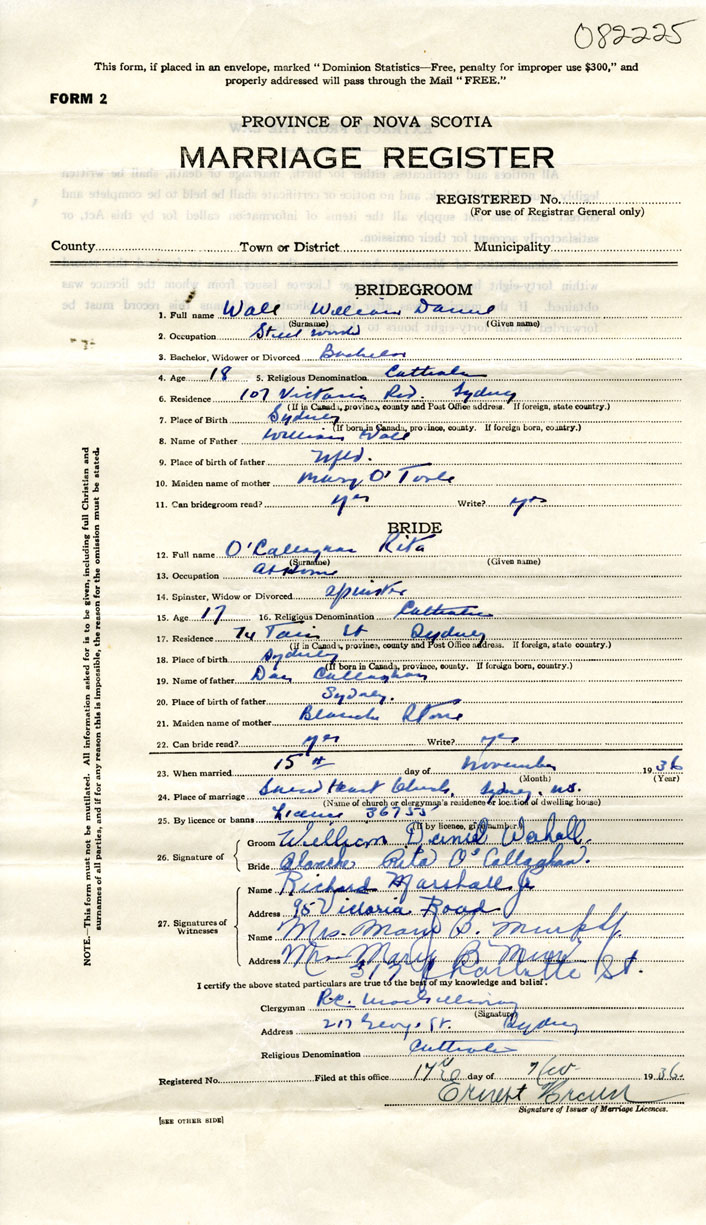 082225
This form, if placed in an envelope, marked "Dominion Statistics—Free, penalty for improper use $300," and
properly addressed will pass through the Mail "FREE."
FORM 2
PROVINCE OF NOVA SCOTIA
MARRIAGE REGISTER
REGISTERED No.
(For use of Registrar General only)
County Town or District Municipality
BRIDEGROOM
1. Full name Wall William Daniel
(Surname) (Given name)
2. Occupation Steel
3. Bachelor, Widower or Divorced Bachelor
4. Age 18 5. Religious Denomination Catholic
6. Residence 107 Victoria Rd. Sydney
(If in Canada, province, county and Post Office address. If foreign, state country.)
7. Place of Birth Sydney
(If born in Canada, province, county. If foreign born, country.)
8. Name of Father William Wall
9. Place of birth of father Nfld.
10. Maiden name of mother Mary O'Toole
11. Can bridegroom read? yes Write? yes
BRIDE
12. Full name O'Callaghan Rita
(Surname) (Given name)
13. Occupation At Home
14. Spinster, Widow or Divorced Spinster
15. Age 17 16. Religious Denomination Catholic
17. Residence 74 St Sydney
(If in Canada, province, county and Post Office address. If foreign, state country.)
18. Place of birth Sydney
(If born in Canada, province, county. If foreign born, country.)
19. Name of father Dan Callaghan
20. Place of birth of father Sydney.
21. Maiden name of mother Blanche Stone
22. Can bride read? yes Write? yes
23. When married 15th day of November 1936
(Month) (Year)
24. Place of marriage Sacred Heart Church, Sydney, N.S.
(Name of church or clergyman's residence or location of dwelling house)
25. By licence or banns License 36755
(If by licence, give number.)
26. Signature of
Groom William Daniel
Bride Blanche Rita O'Callaghan.
27. Signatures of Witnesses
Name Richard Marshall Jr
Address 95 Victoria Road
Name Mrs. Mary B. Murphy
Address Mrs Mary B
Charlotte St.
I certify the above stated particulars are true to the best of my knowledge and belief.
Clergyman R.C. MacGillivray
(Signature)
Address 217 George St. Sydney
Religious Denomination Catholic
Registered No. Filed at this office 17th day of Nov 1936.
Ernest Brown
Signature of Issuer of Marriage Licences.
[SEE OTHER SIDE]
NOTE.—This form must not be mutilated. All information asked for is to be given, including full Christian and
surnames of all parties, and if for any reason this is impossible, the reason for the omission must be stated.